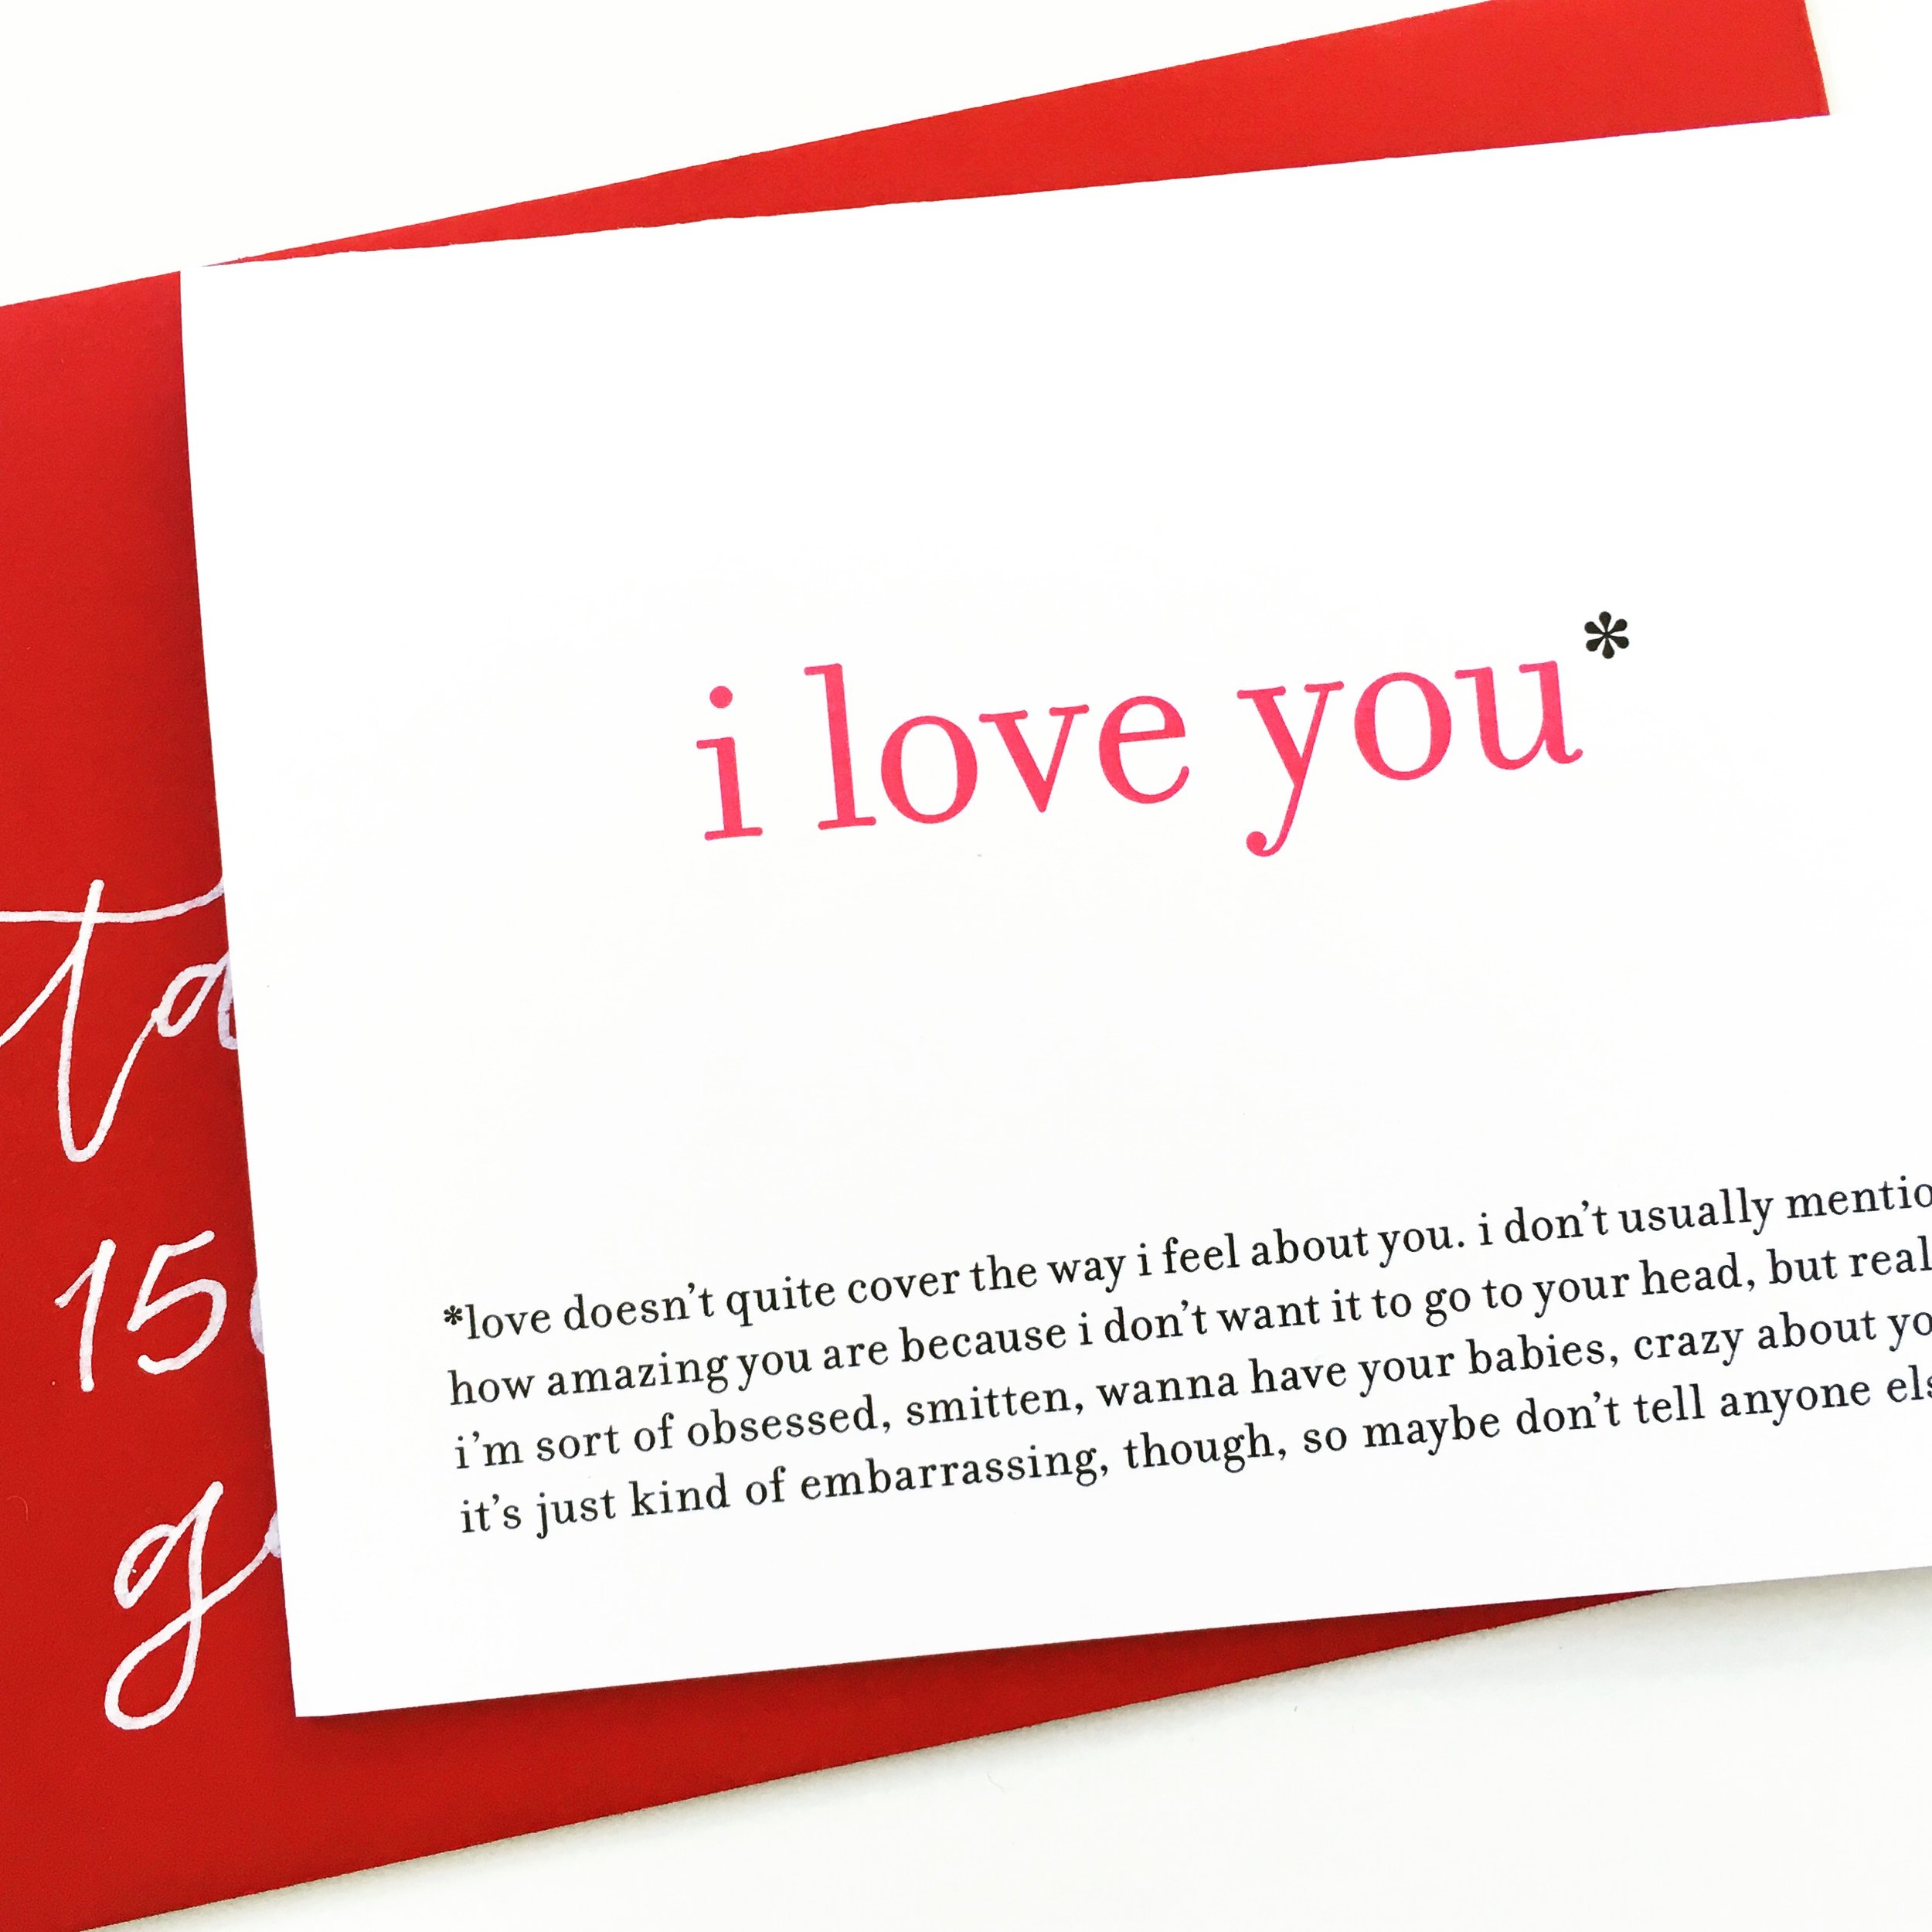 i love you*
*love doesn't quite cover the way i feel about you. i don't usually
how amazing you are because i don't want it to go to your head, but
i'm sort of obsessed, smitten, wanna have your babies, crazy about
it's just kind of embarrassing, though, so maybe don't tell anyone